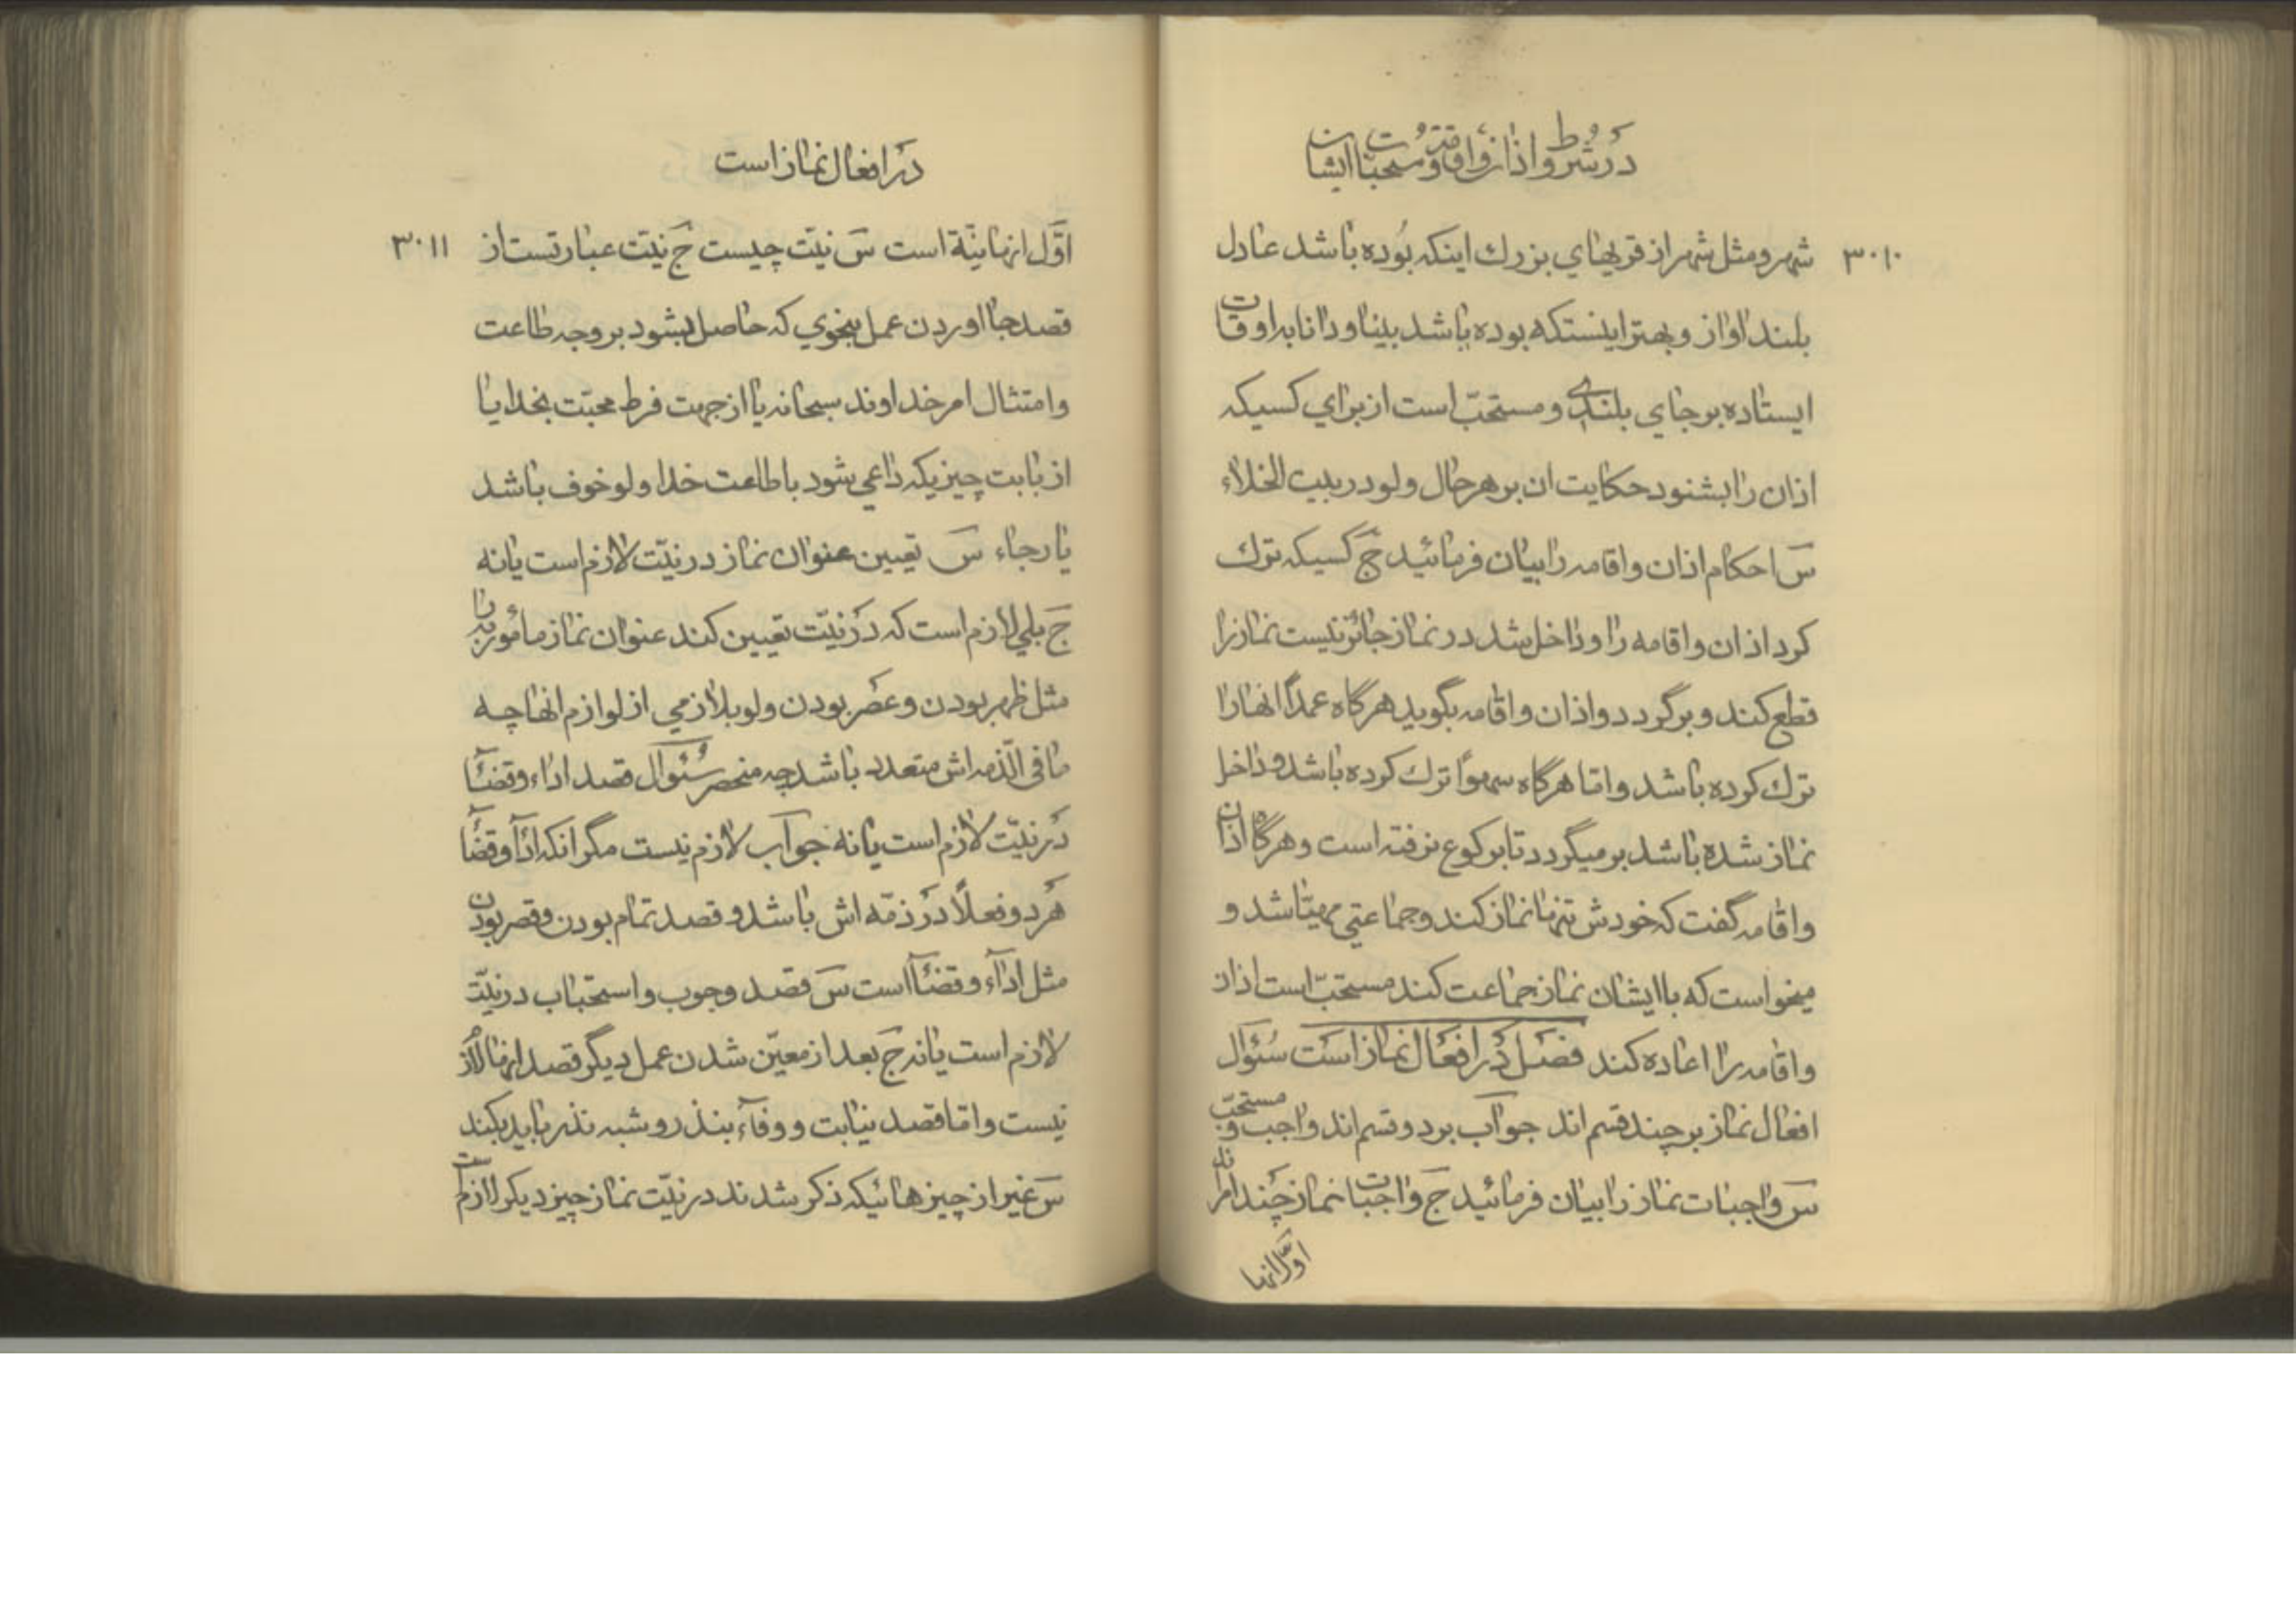 در شروط اذان و اقامت و مستحبات ایشان
۳۰۱۰
شهر و مثل شهر از قریهای بزرك اینکه بوده باشد عادل
بلند اواز و بهتر اینستکه بوده باشد بینا و دانا به اوقات
ایستاده بر جای بلندی و مستحبّ است از برای کسیکه
اذان را بشنود حکایت ان بر هر حال ولو در بیت الخلاء
سَ احکام اذان و اقامه را بیان فرمائید جَ کسیکه ترك
کرد اذان و اقامه را و داخل شد در نماز جائز نیست نماز را
قطع کند و برگردد و اذان و اقامه بگوید هرگاه عمداً انها را
ترك کرده باشد و امّا هرگاه سهواً ترك کرده باشد و داخل
نماز شده باشد برمیگردد تا برکوع نرفته است و هرگاه اذان
و اقامه گفت که خودش تنها نماز کند و جماعتی مهیّا شد و
میخواست که با ایشان نماز جماعت کند مستحبّ است اذان
و اقامه را اعاده کند فصل در افعال نماز است سُئوال
افعال نماز بر چند قسم اند جواب بر دو قسم اند واجب و مستحبّ
سَ واجبات نماز را بیان فرمائید جَ واجبات نماز چند امرند
اوّل انها
در افعال نماز است
۳۰۱۱
اوّل انها نیّة است سَ نیّت چیست جَ نیّت عبارتست از
قصد بجا اوردن عمل بنحوي که حاصل بشود بر وجه طاعت
و امتثال امر خداوند سبحانه یا از جهت فرط محبّت بخدا یا
از بابت چیزیکه داعی شود باطاعت خدا ولو خوف باشد
یا رجاء سَ تعیین عنوان نماز در نیّت لازم است یا نه
جَ بلي لازم است که در نیّت تعیین کند عنوان نماز مأمور به را
مثل ظهر بودن و عصر بودن ولو بلازمي از لوازم انها چه
ما فی الذّمه اش متعدد باشد چه منحصر سُئوال قصد اداء و قضآء
در نیّت لازم است یا نه جواب لازم نیست مگر انکه ادآء و قضآء
هر دو فعلاً در ذمّه اش باشد و قصد تمام بودن و قصر بودن
مثل ادآء و قضآء است سَ قصد وجوب و استحباب در نیّت
لازم است یا نه جَ بعد از معیّن شدن عمل دیگر قصد اینها لازم
نیست و امّا قصد نیابت و وفآء بنذر و شبه نذر باید بکند
سَ غیر از چیزهائیکه ذکر شدند در نیّت نماز چیز دیگر لازم است